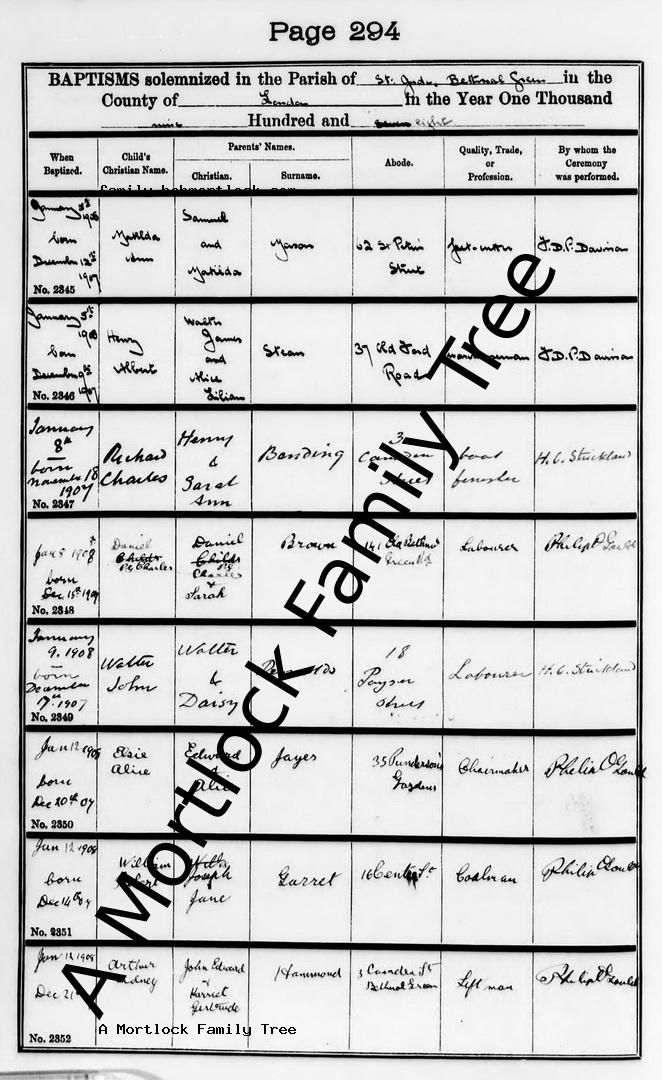 Page 294
BAPTISMS solemnized in the Parish of St. Jude, Bethnal Green in the
County of London in the Year One Thousand
nine Hundred and seven eight
When Baptized.
Child's Christian Name.
Parents' Names.
Christian.
Surname.
Abode.
Quality, Trade, or Profession.
By whom the Ceremony was performed.
January 5th 1908 born December 12th 1907
Matilda Ann
Samuel and Matilda
Mason
62 St Peters Street
J.D.P. Davison
No. 2345
January 5th 1908 born December 9th 1907
Henry Albert
Walter James and Alice Lilian
37 Old Ford Road
J.D.P. Davison
No. 2346
January 8th born November 18 1907
Richard Charles
Henry & Sarah Ann
Bending
3 Camden Street
boot finisher
H. C. Strickland
No. 2347
Jan 8th 1908 born Dec 15th 1907
Daniel Charles
Daniel Charles + Sarah
Brown
141 Old Bethnal Green Rd
Labourer
Philip O Gould
No. 2348
January 9. 1908 born December 7th 1907
Walter John
Walter & Daisy
18 Street
Labourer
H. C. Strickland
No. 2349
Jan 12 1908 born Dec 20th 07
Elsie Alice
Edward Alice
Jayes
35 Punderson's Gardens
Chairmaker
Philip O Gould
No. 2350
Jan 12 1908 born Dec 14th 07
William
Joseph Jane
Garret
16 Centre St
Coalman
Philip O Gould
No. 2351
Jan 12 1908
Dec 21
Arthur Sidney
John Edward + Harriet Gertrude
Hammond
3 Camden St Bethnal Green
Lift man
Philip O Gould
No. 2352
A Mortlock Family Tree
A Mortlock Family Tree